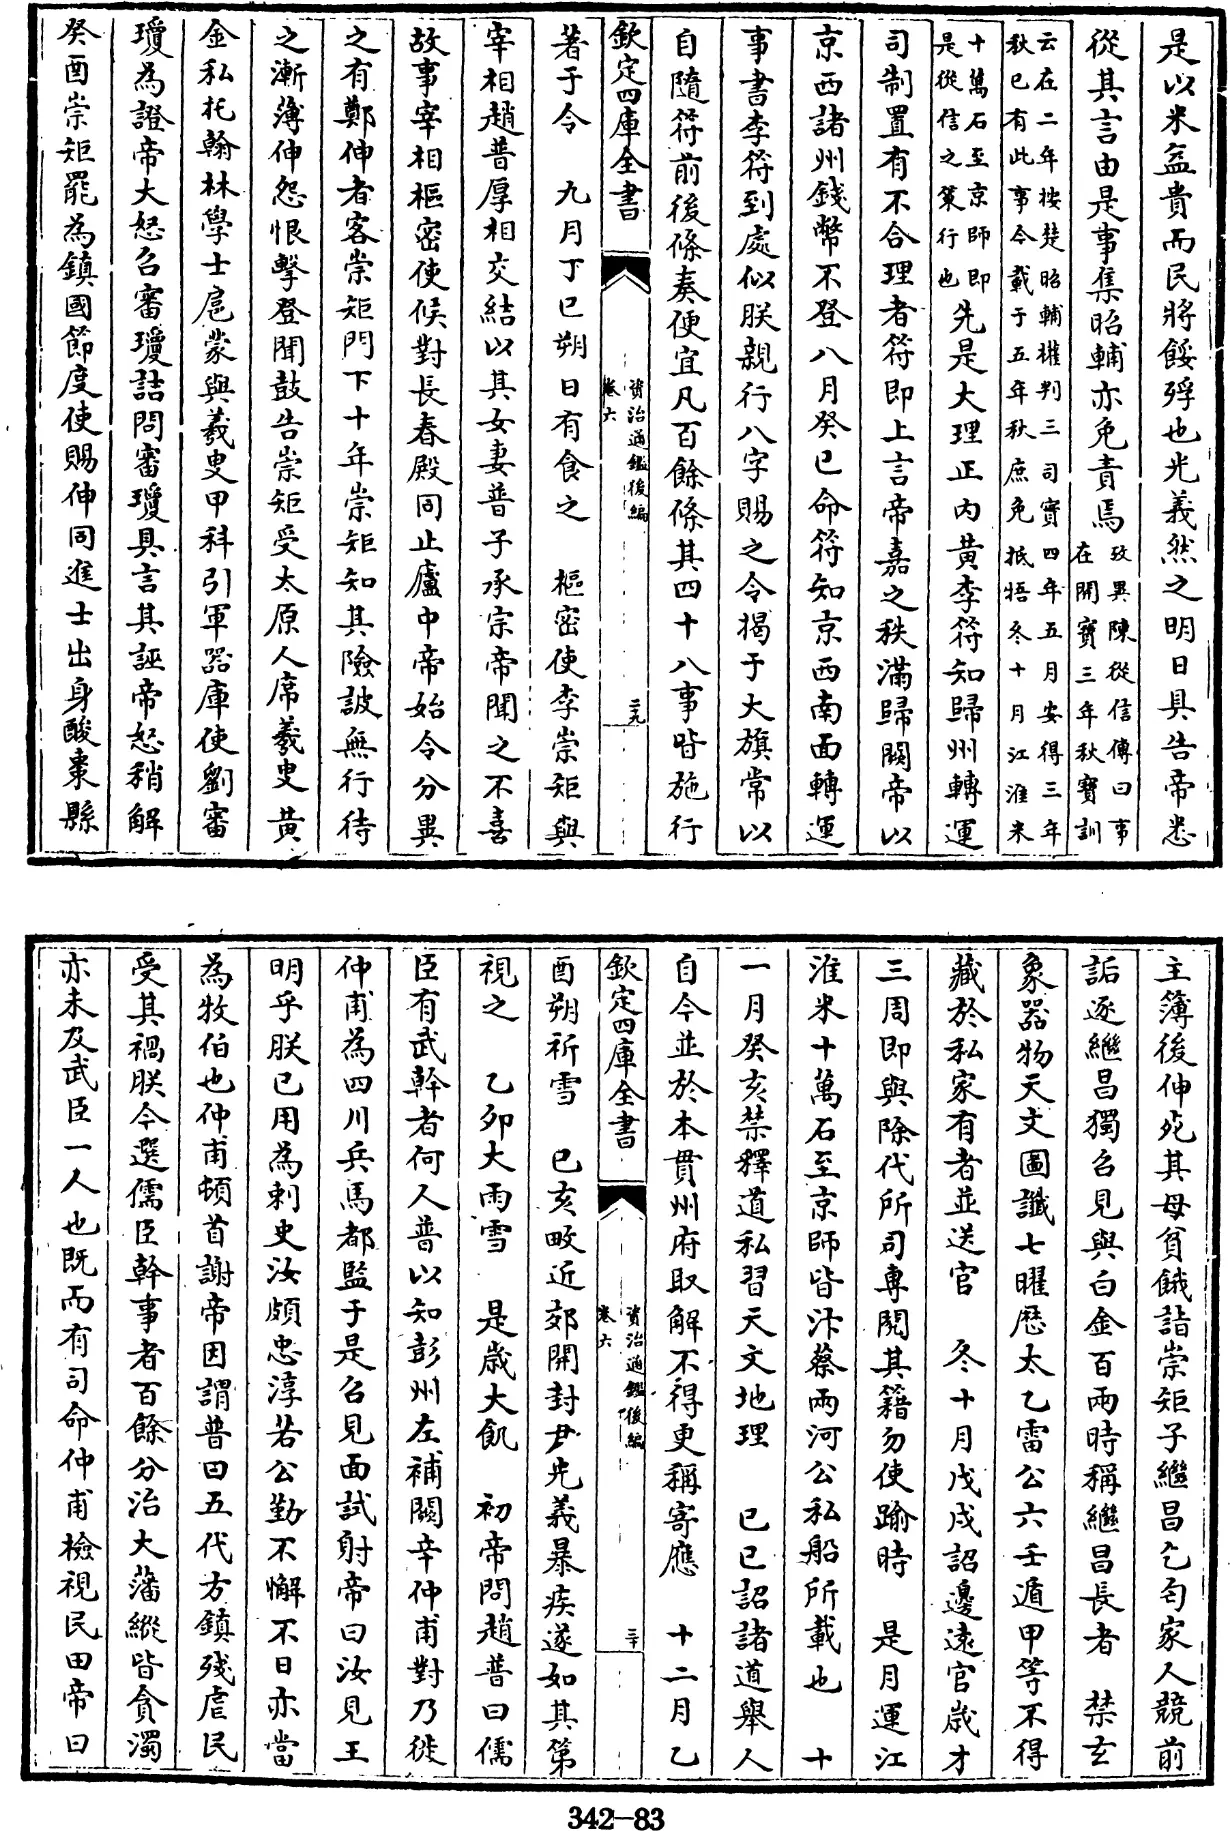 是以米益貴而民將餒殍也光義然之明日具告帝悉
從其言由是事集昭輔亦免責焉攷異陳從信傳曰事在開寶三年秋寶訓
云在二年按楚昭輔權判三司實四年五月安得三年秋已有此事今載于五年秋庶免抵牾冬十月江淮米
十萬石至京師即是從信之策行也先是大理正内黄李符知歸州轉運
司制置有不合理者符即上言帝嘉之秩滿歸闕帝以
京西諸州錢幣不登八月癸巳命符知京西南面轉運
事書李符到處似朕親行八字賜之令揭于大旗常以
自隨符前後條奏便宜凡百餘條其四十八事皆施行
欽定四庫全書
資治通鑑後編
卷六
二九
著于令 九月丁巳朔日有食之 樞密使李崇矩與
宰相趙普厚相交結以其女妻普子承宗帝聞之不喜
故事宰相樞密使候對長春殿同止廬中帝始令分異
之有鄭伸者客崇矩門下十年崇矩知其險詖無行待
之漸薄伸怨恨擊登聞鼓告崇矩受太原人席羲叟黄
金私托翰林學士扈蒙與羲叟甲科引軍器庫使劉審
瓊為證帝大怒召審瓊詰問審瓊具言其誣帝怒稍解
癸酉崇矩罷為鎮國節度使賜伸同進士出身酸棗縣
主簿後伸死其母貧餓詣崇矩子繼昌乞匄家人競前
詬逐繼昌獨召見與白金百兩時稱繼昌長者 禁玄
象器物天文圖讖七曜厯太乙雷公六壬遁甲等不得
藏於私家有者並送官 冬十月戊戌詔邊遠官歲才
三周即與除代所司專閲其籍勿使踰時 是月運江
淮米十萬石至京師皆汴蔡兩河公私船所載也 十
一月癸亥禁釋道私習天文地理 己巳詔諸道舉人
自今並於本貫州府取解不得更稱寄應 十二月乙
欽定四庫全書
資治通鑑後編
卷六
三十
酉朔祈雪 已亥畋近郊開封尹光義暴疾遂如其第
視之 乙卯大雨雪 是歲大飢 初帝問趙普曰儒
臣有武幹者何人普以知彭州左補闕辛仲甫對乃徙
仲甫為四川兵馬都監于是召見面試射帝曰汝見王
明乎朕已用為刺史汝頗忠淳若公勤不懈不日亦當
為牧伯也仲甫頓首謝帝因謂普曰五代方鎮殘虐民
受其禍朕今選儒臣幹事者百餘分治大藩縱皆貪濁
亦未及武臣一人也既而有司命仲甫檢視民田帝曰
342-83